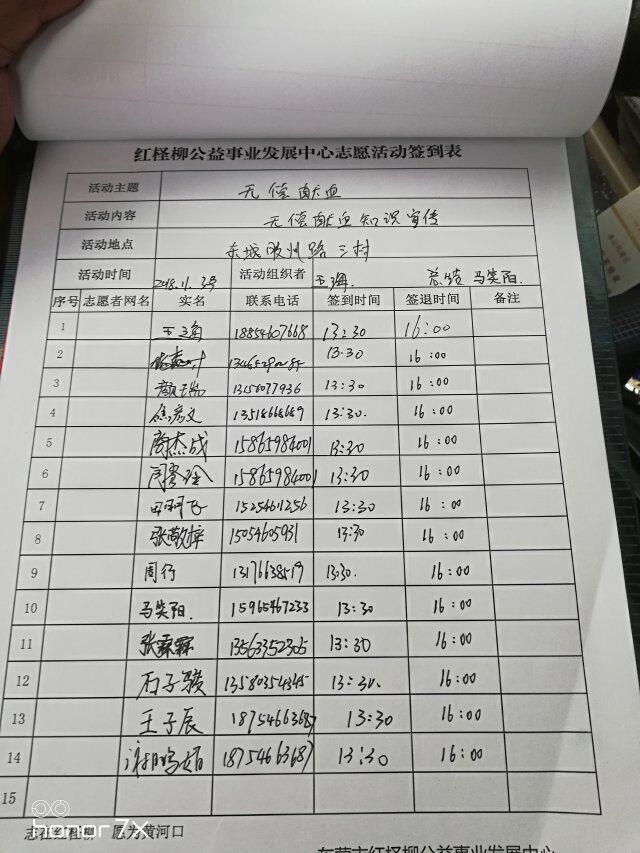 红柽柳公益事业发展中心志愿活动签到表
活动主题 无偿献血
活动内容 无偿献血知识宣传
活动地点 东城胶州路三村
活动时间 2018.11.3号 活动组织者 王海 总结 马笑阳.
序号 志愿者网名 实名 联系电话 签到时间 签退时间 备注
1 18854607668 13:30 16:00
2 13:30 16:00
3 13:30 16:00
4 徐彦文 13518668689 13:30. 16:00
5 商杰成 15865984001 13:30 16:00
6 15865984001 13:30 16:00
7 15254611256 13:30 16:00
8 张歌梓 15054605931 13:30 16:00
9 周行 13176638519 13:30. 16:00
10 马笑阳. 15965467233 13:30 16:00
11 张霖霖 13563352305 13:30 16:00
12 石子骏 13580354345 13:30. 16:00
13 王子辰 18754663687 13:30 16:00
14 18754663687 13:30 16:00
15
志在红柽柳 愿为黄河口
东营市红柽柳公益事业发展中心
honor 7X